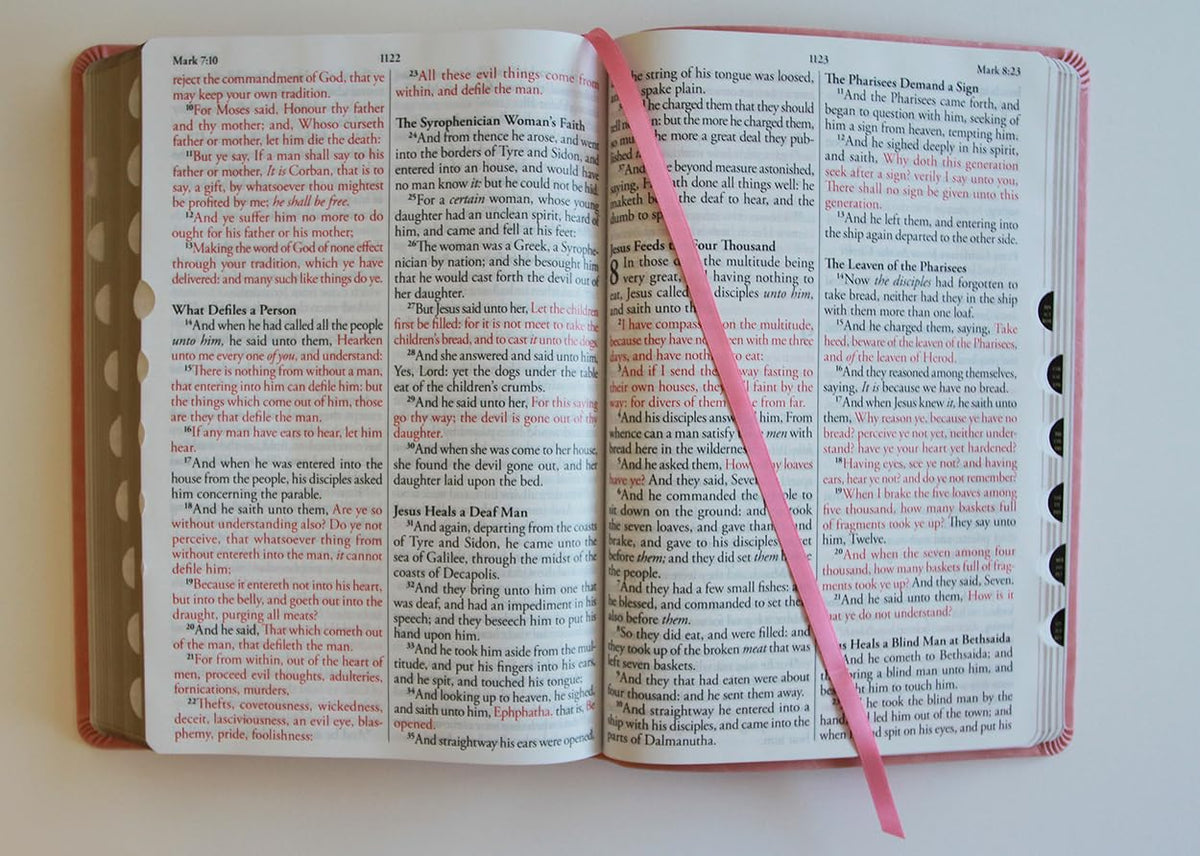 Mark 7:10
1122
reject the commandment of God, that ye
may keep your own tradition.
10For Moses said, Honour thy father
and thy mother; and, Whoso curseth
father or mother, let him die the death:
11But ye say, If a man shall say to his
father or mother, It is Corban, that is to
say, a gift, by whatsoever thou mightest
be profited by me; he shall be free.
12And ye suffer him no more to do
ought for his father or his mother;
13Making the word of God of none effect
through your tradition, which ye have
delivered: and many such like things do ye.
What Defiles a Person
14And when he had called all the people
unto him, he said unto them, Hearken
unto me every one of you, and understand:
15There is nothing from without a man,
that entering into him can defile him: but
the things which come out of him, those
are they that defile the man.
16If any man have ears to hear, let him
hear.
17And when he was entered into the
house from the people, his disciples asked
him concerning the parable.
18And he saith unto them, Are ye so
without understanding also? Do ye not
perceive, that whatsoever thing from
without entereth into the man, it cannot
defile him;
19Because it entereth not into his heart,
but into the belly, and goeth out into the
draught, purging all meats?
20And he said, That which cometh out
of the man, that defileth the man.
21For from within, out of the heart of
men, proceed evil thoughts, adulteries,
fornications, murders,
22Thefts, covetousness, wickedness,
deceit, lasciviousness, an evil eye, blas-
phemy, pride, foolishness:
23All these evil things come from
within, and defile the man.
The Syrophenician Woman's Faith
24And from thence he arose, and went
into the borders of Tyre and Sidon, and
entered into an house, and would have
no man know it: but he could not be hid.
25For a certain woman, whose young
daughter had an unclean spirit, heard of
him, and came and fell at his feet:
26The woman was a Greek, a Syrophe-
nician by nation; and she besought him
that he would cast forth the devil out of
her daughter.
27But Jesus said unto her, Let the children
first be filled: for it is not meet to take the
children's bread, and to cast it unto the dogs.
28And she answered and said unto him,
Yes, Lord: yet the dogs under the table
eat of the children's crumbs.
29And he said unto her, For this saying
go thy way; the devil is gone out of thy
daughter.
30And when she was come to her house,
she found the devil gone out, and her
daughter laid upon the bed.
Jesus Heals a Deaf Man
31And again, departing from the coasts
of Tyre and Sidon, he came unto the
sea of Galilee, through the midst of the
coasts of Decapolis.
32And they bring unto him one that
was deaf, and had an impediment in his
speech; and they beseech him to put his
hand upon him.
33And he took him aside from the mul-
titude, and put his fingers into his ears,
and he spit, and touched his tongue;
34And looking up to heaven, he sighed,
and saith unto him, Ephphatha, that is, Be
opened.
35And straightway his ears were opened,
1123
Mark 8:23
he string of his tongue was loosed,
spake plain.
he charged them that they should
tell n: but the more he charged them,
so mu he more a great deal they pub-
lished
37And beyond measure astonished,
saying, H ath done all things well: he
maketh b the deaf to hear, and the
dumb to sp
Jesus Feeds t Four Thousand
8 In those d the multitude being
very great, having nothing to
eat, Jesus called disciples unto him,
and saith unto th
2I have compass on the multitude,
because they have no en with me three
days, and have noth to eat:
3And if I send the way fasting to
their own houses, they ll faint by the
way: for divers of them e from far.
4And his disciples answ him, From
whence can a man satisfy men with
bread here in the wilderne
5And he asked them, How y loaves
have ye? And they said, Seve
6And he commanded the ple to
sit down on the ground: and ook
the seven loaves, and gave than and
brake, and gave to his disciples et
before them; and they did set them
the people.
7And they had a few small fishes: a
he blessed, and commanded to set the
also before them.
8So they did eat, and were filled: and
they took up of the broken meat that was
left seven baskets.
9And they that had eaten were about
four thousand: and he sent them away.
10And straightway he entered into a
ship with his disciples, and came into the
parts of Dalmanutha.
The Pharisees Demand a Sign
11And the Pharisees came forth, and
began to question with him, seeking of
him a sign from heaven, tempting him.
12And he sighed deeply in his spirit,
and saith, Why doth this generation
seek after a sign? verily I say unto you,
There shall no sign be given unto this
generation.
13And he left them, and entering into
the ship again departed to the other side.
The Leaven of the Pharisees
14Now the disciples had forgotten to
take bread, neither had they in the ship
with them more than one loaf.
15And he charged them, saying, Take
heed, beware of the leaven of the Pharisees,
and of the leaven of Herod.
16And they reasoned among themselves,
saying, It is because we have no bread.
17And when Jesus knew it, he saith unto
them, Why reason ye, because ye have no
bread? perceive ye not yet, neither under-
stand? have ye your heart yet hardened?
18Having eyes, see ye not? and having
ears, hear ye not? and do ye not remember?
19When I brake the five loaves among
five thousand, how many baskets full
of fragments took ye up? They say unto
him, Twelve.
20And when the seven among four
thousand, how many baskets full of frag-
ments took ye up? And they said, Seven.
21And he said unto them, How is it
hat ye do not understand?
us Heals a Blind Man at Bethsaida
And he cometh to Bethsaida; and
they bring a blind man unto him, and
be ht him to touch him.
he took the blind man by the
hand, led him out of the town; and
when d spit on his eyes, and put his